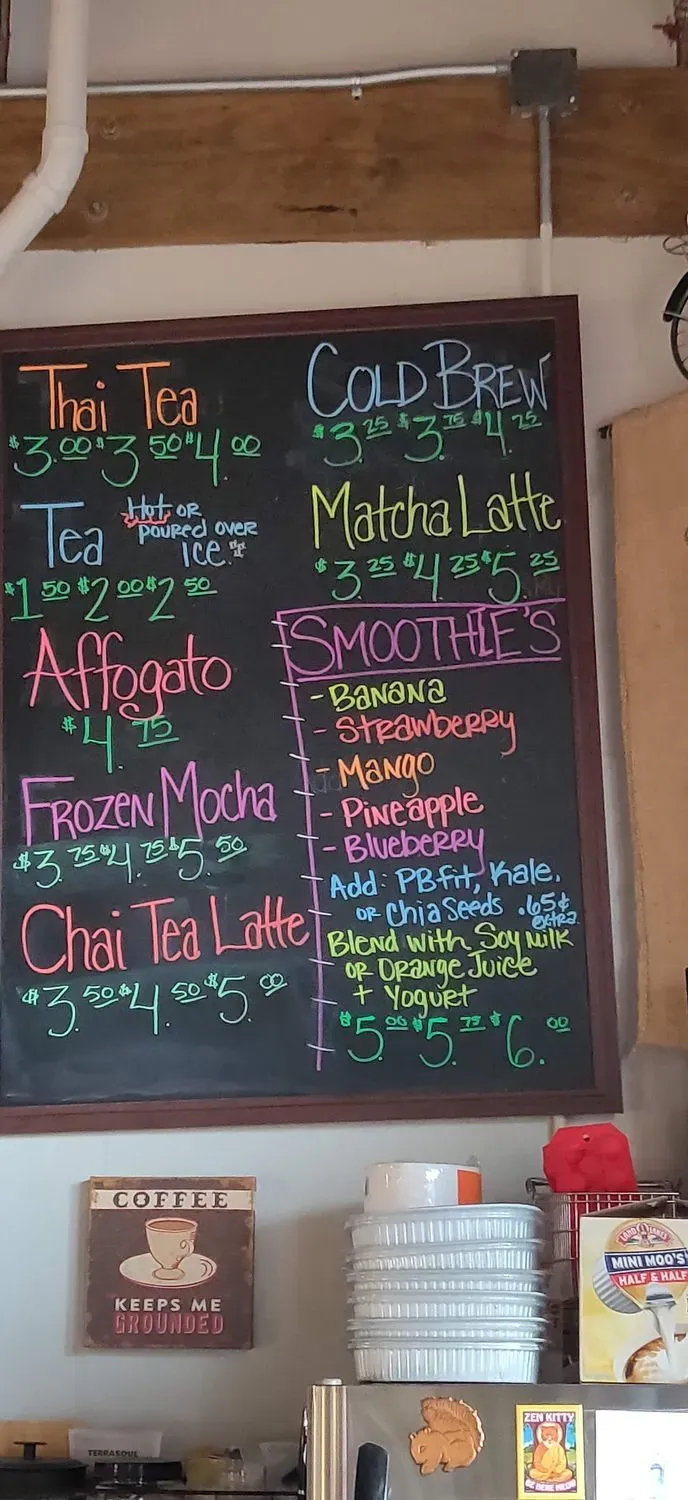 Thai Tea
$3.00 $3.50 $4.00
Tea Hot or
poured over
ice.
$1.50 $2.00 $2.50
Affogato
$4.75
Frozen Mocha
$3.75 $4.75 $5.50
Chai Tea Latte
$3.50 $4.50 $5.00
Cold Brew
$3.25 $3.75 $4.25
Matcha Latte
$3.25 $4.25 $5.25
Smoothie's
- Banana
- Strawberry
- Mango
- Pineapple
- Blueberry
Add: PBfit, Kale,
or Chia Seeds .65¢
extra
Blend with Soy Milk
or Orange Juice
+ Yogurt
$5.00 $5.75 $6.00
COFFEE
KEEPS ME
GROUNDED
LAND O LAKES
MINI MOO'S
HALF & HALF
ZEN KITTY
TERRASOUL